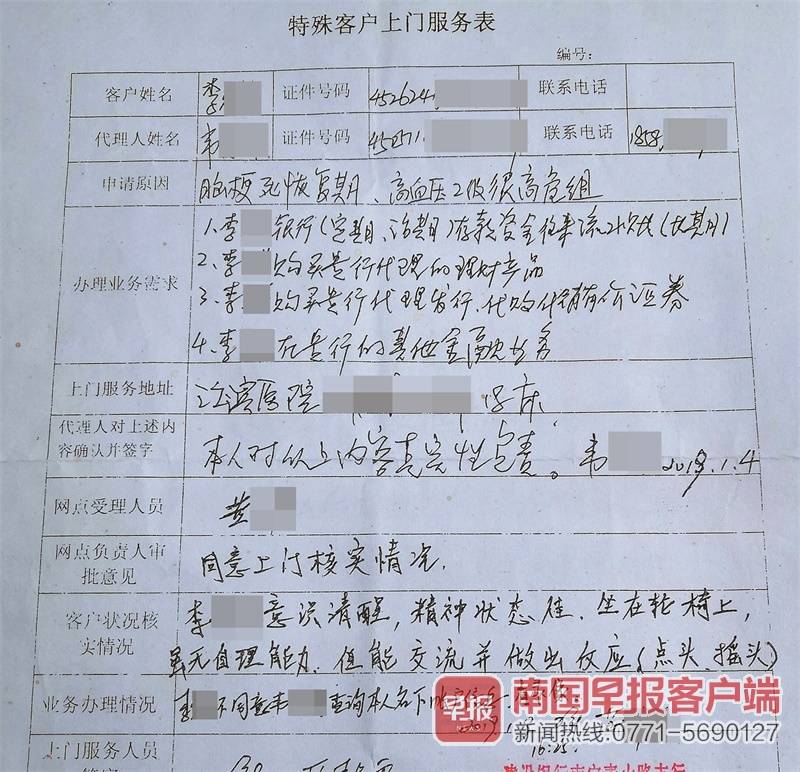 特殊客户上门服务表
编号:
客户姓名 李 证件号码 452624 联系电话
代理人姓名 韦 证件号码 45271 联系电话 1858
申请原因 脑梗死恢复期、高血压2级很高危组
1.李 银行(定期、活期)存款资金往来流水状(长期)
办理业务需求 2.李 购买贵行代理的理财产品
3.李 购买贵行代理发行、代购代销有价证券
4.李 在贵行的其他金融业务
上门服务地址 江滨医院 号床
代理人对上述内
容确认并签字 本人对以上内容真实性负责。韦 2019.1.4
网点受理人员 黄
网点负责人审
批意见 同意上门核实情况.
客户状况核
实情况 李 意识清醒,精神状态佳.坐在轮椅上,
虽无自理能力.但能交流并做出反应(点头、摇头)
业务办理情况 李 不同意韦 查询本人名下
早报
NEWS
南国早报客户端
新闻热线:0771-5690127
16:25
上门服务人员